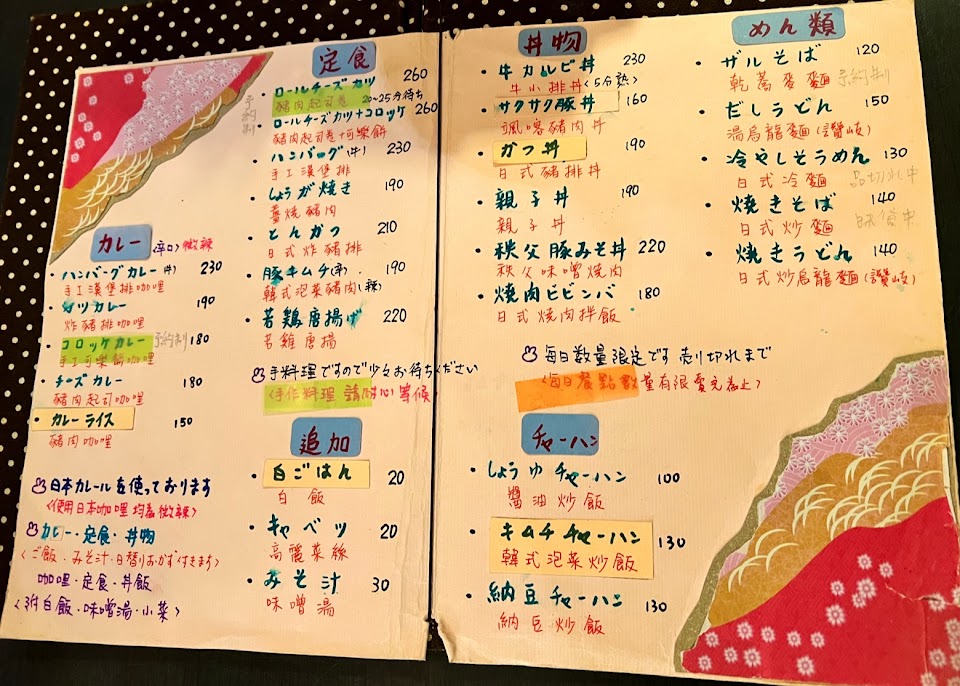 カレー (辛口) 微辣
ハンバーグカレー(牛) 230
手工漢堡排咖哩
カツカレー 190
炸豬排咖哩
コロッケカレー 予約制 180
手工可樂餅咖哩
チーズカレー 180
豬肉起司咖哩
カレーライス 150
豬肉咖哩
日本カレールを使っております
<使用日本咖哩 均為微辣>
カレー・定食・丼物
<ご飯・みそ汁・日替りおかず付きます>
咖哩・定食・丼飯
<附白飯・味噌湯・小菜>
定食
予約制
ロールチーズカツ 260
豬肉起司卷 20~25分待ち
ロールチーズカツ+コロッケ 260
豬肉起司卷+可樂餅
ハンバーグ(牛) 230
手工漢堡排
しょうが焼き 190
薑燒豬肉
とんかつ 210
日式炸豬排
豚キムチ(辛) 190
韓式泡菜豬肉(辣)
若鶏唐揚げ 220
若雞唐揚
手料理ですので少々お待ちください
<手作料理 請耐心等候
追加
白ごはん 20
白飯
キャベツ 20
高麗菜絲
みそ汁 30
味噌湯
丼物
牛カルビ丼 230
牛小排丼<5分熟>
サクサク豚丼 160
颯喀豬肉丼
かつ丼 190
日式豬排丼
親子丼 190
親子丼
秩父豚みそ丼 220
秩父味噌燒肉
焼肉ビビンバ 180
日式燒肉拌飯
毎日数量限定です 売り切れまで
<每日餐點數量有限賣完為止>
チャーハン
しょうゆチャーハン 100
醬油炒飯
キムチチャーハン 130
韓式泡菜炒飯
納豆チャーハン 130
納豆炒飯
めん類
ザルそば 120
乾蕎麥麵 予約制
だしうどん 150
湯烏龍麵(讚岐)
冷やしそうめん 130
日式冷麵 品切れ中
焼きそば 140
日式炒麵
焼きうどん 140
日式炒烏龍麵(讚岐)